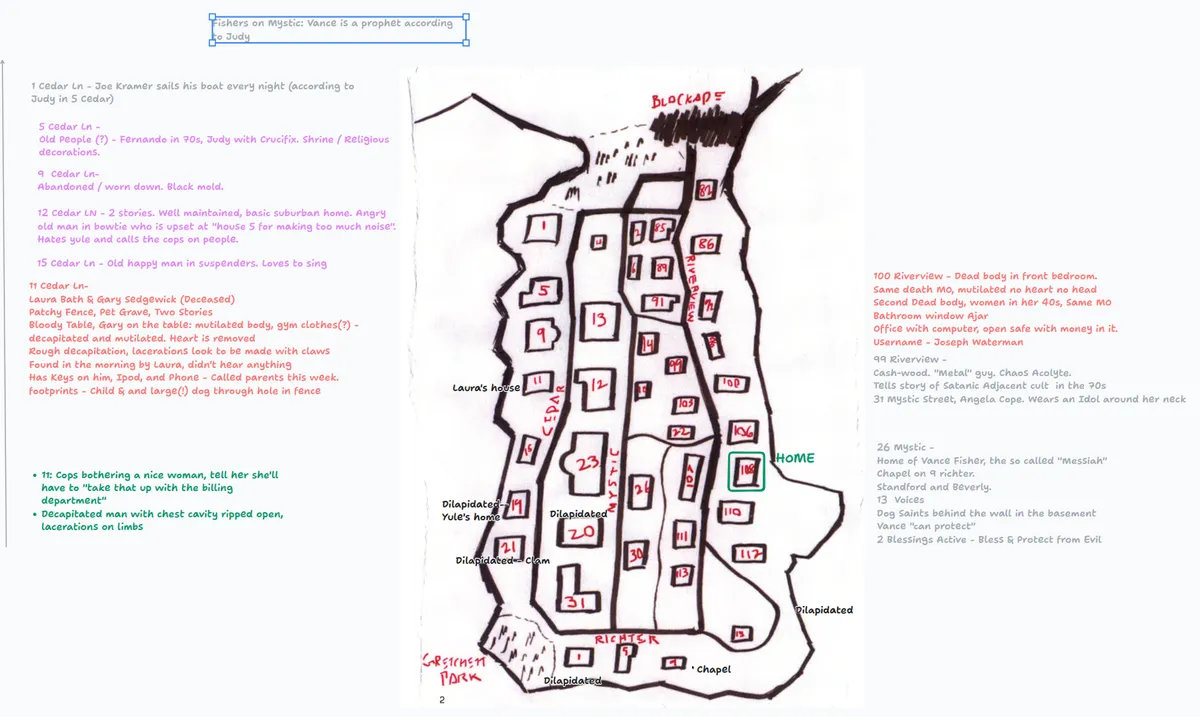 Fishers on Mystic: Vance is a prophet according
to Judy
1 Cedar Ln - Joe Kramer sails his boat every night (according to
Judy in 5 Cedar)
5 Cedar Ln -
Old People (?) - Fernando in 70s, Judy with Crucifix. Shrine / Religious
decorations.
9 Cedar Ln-
Abandoned / worn down. Black mold.
12 Cedar LN - 2 stories. Well maintained, basic suburban home. Angry
old man in bowtie who is upset at "house 5 for making too much noise".
Hates yule and calls the cops on people.
15 Cedar Ln - Old happy man in suspenders. Loves to sing
11 Cedar Ln-
Laura Bath & Gary Sedgewick (Deceased)
Patchy Fence, Pet Grave, Two Stories
Bloody Table, Gary on the table: mutilated body, gym clothes(?) -
decapitated and mutilated. Heart is removed
Rough decapitation, lacerations look to be made with claws
Found in the morning by Laura, didn't hear anything
Has Keys on him, Ipod, and Phone - Called parents this week.
footprints - Child & and large(!) dog through hole in fence
• 11: Cops bothering a nice woman, tell her she'll
have to "take that up with the billing
department"
• Decapitated man with chest cavity ripped open,
lacerations on limbs
BLOCKADE
82
1
4
2
85
86
6
89
RIVERVIEW
5
91
9
13
14
99
Laura's house
11
12
100
CEDAR
103
22
106
15
23
MYSTIC
26
108
HOME
Dilapidated-
Yule's home
19
Dilapidated
20
110
111
21
Dilapidated - Clam
30
112
113
31
Dilapidated
RICHTER
GRETCHEN
PARK
1
5
9
Chapel
Dilapidated
2
100 Riverview - Dead body in front bedroom.
Same death MO, mutilated no heart no head
Second Dead body, women in her 40s, Same MO
Bathroom window Ajar
Office with computer, open safe with money in it.
Username - Joseph Waterman
99 Riverview -
Cash-wood. "Metal" guy. Chaos Acolyte.
Tells story of Satanic Adjacent cult in the 70s
31 Mystic Street, Angela Cope. Wears an Idol around her neck
26 Mystic -
Home of Vance Fisher, the so called "Messiah"
Chapel on 9 richter.
Standford and Beverly.
13 Voices
Dog Saints behind the wall in the basement
Vance "can protect"
2 Blessings Active - Bless & Protect from Evil